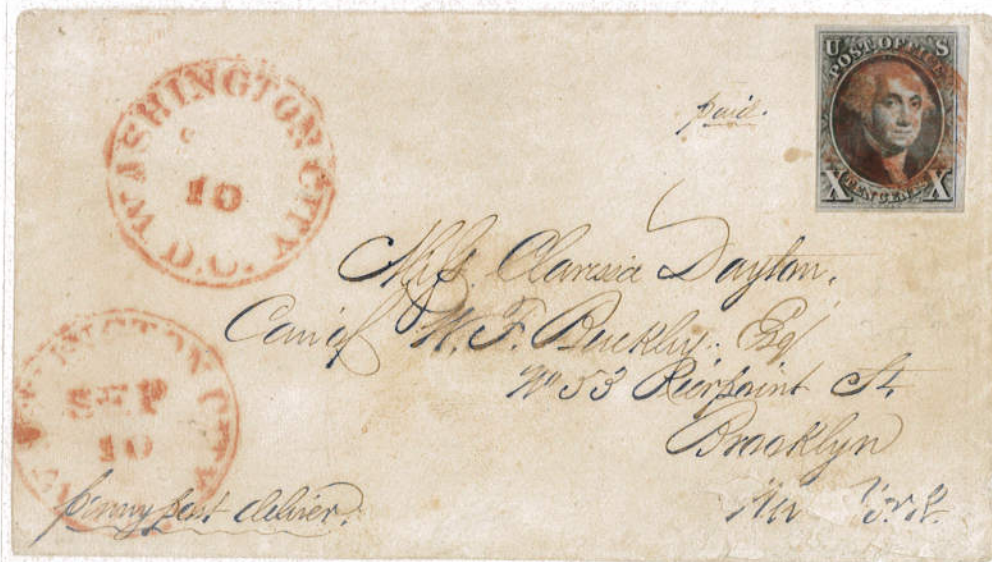 WASHINGTON CITY
10
D.C.
U S
POST OFFICE
X TEN CENTS X
paid.
Miss Clarissa Dayton.
Care of W. F. Buckley. Esq
No 53 Pierpoint St
Brooklyn
New York.
WASHINGTON CITY
SEP
10
penny post deliver.